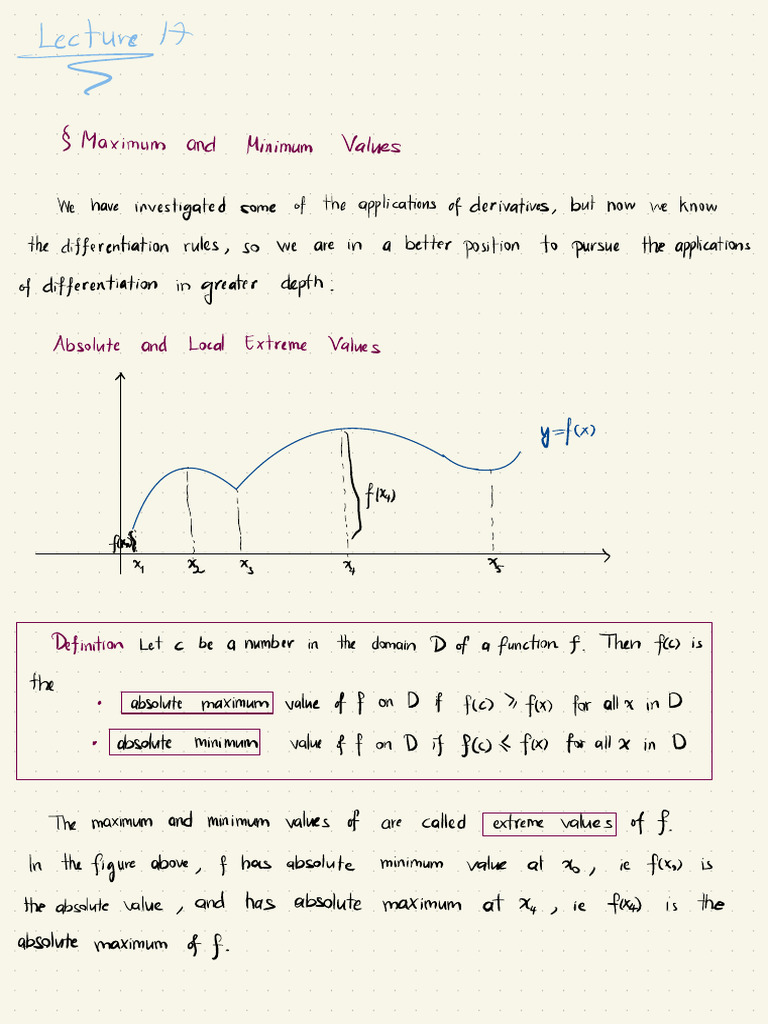 Lecture 17
§ Maximum and Minimum Values
We have investigated some of the applications of derivatives, but now we know
the differentiation rules, so we are in a better position to pursue the applications
of differentiation in greater depth.
Absolute and Local Extreme Values
y=f(x)
f(x₄)
x₁ x₂ x₃ x₄ x₅
Definition Let c be a number in the domain D of a function f. Then f(c) is
the
• absolute maximum value of f on D if f(c) ≥ f(x) for all x in D
• absolute minimum value of f on D if f(c) ≤ f(x) for all x in D
The maximum and minimum values of are called extreme values of f.
In the figure above, f has absolute minimum value at x₀, ie f(x₀) is
the absolute value, and has absolute maximum at x₄, ie f(x₄) is the
absolute maximum of f.